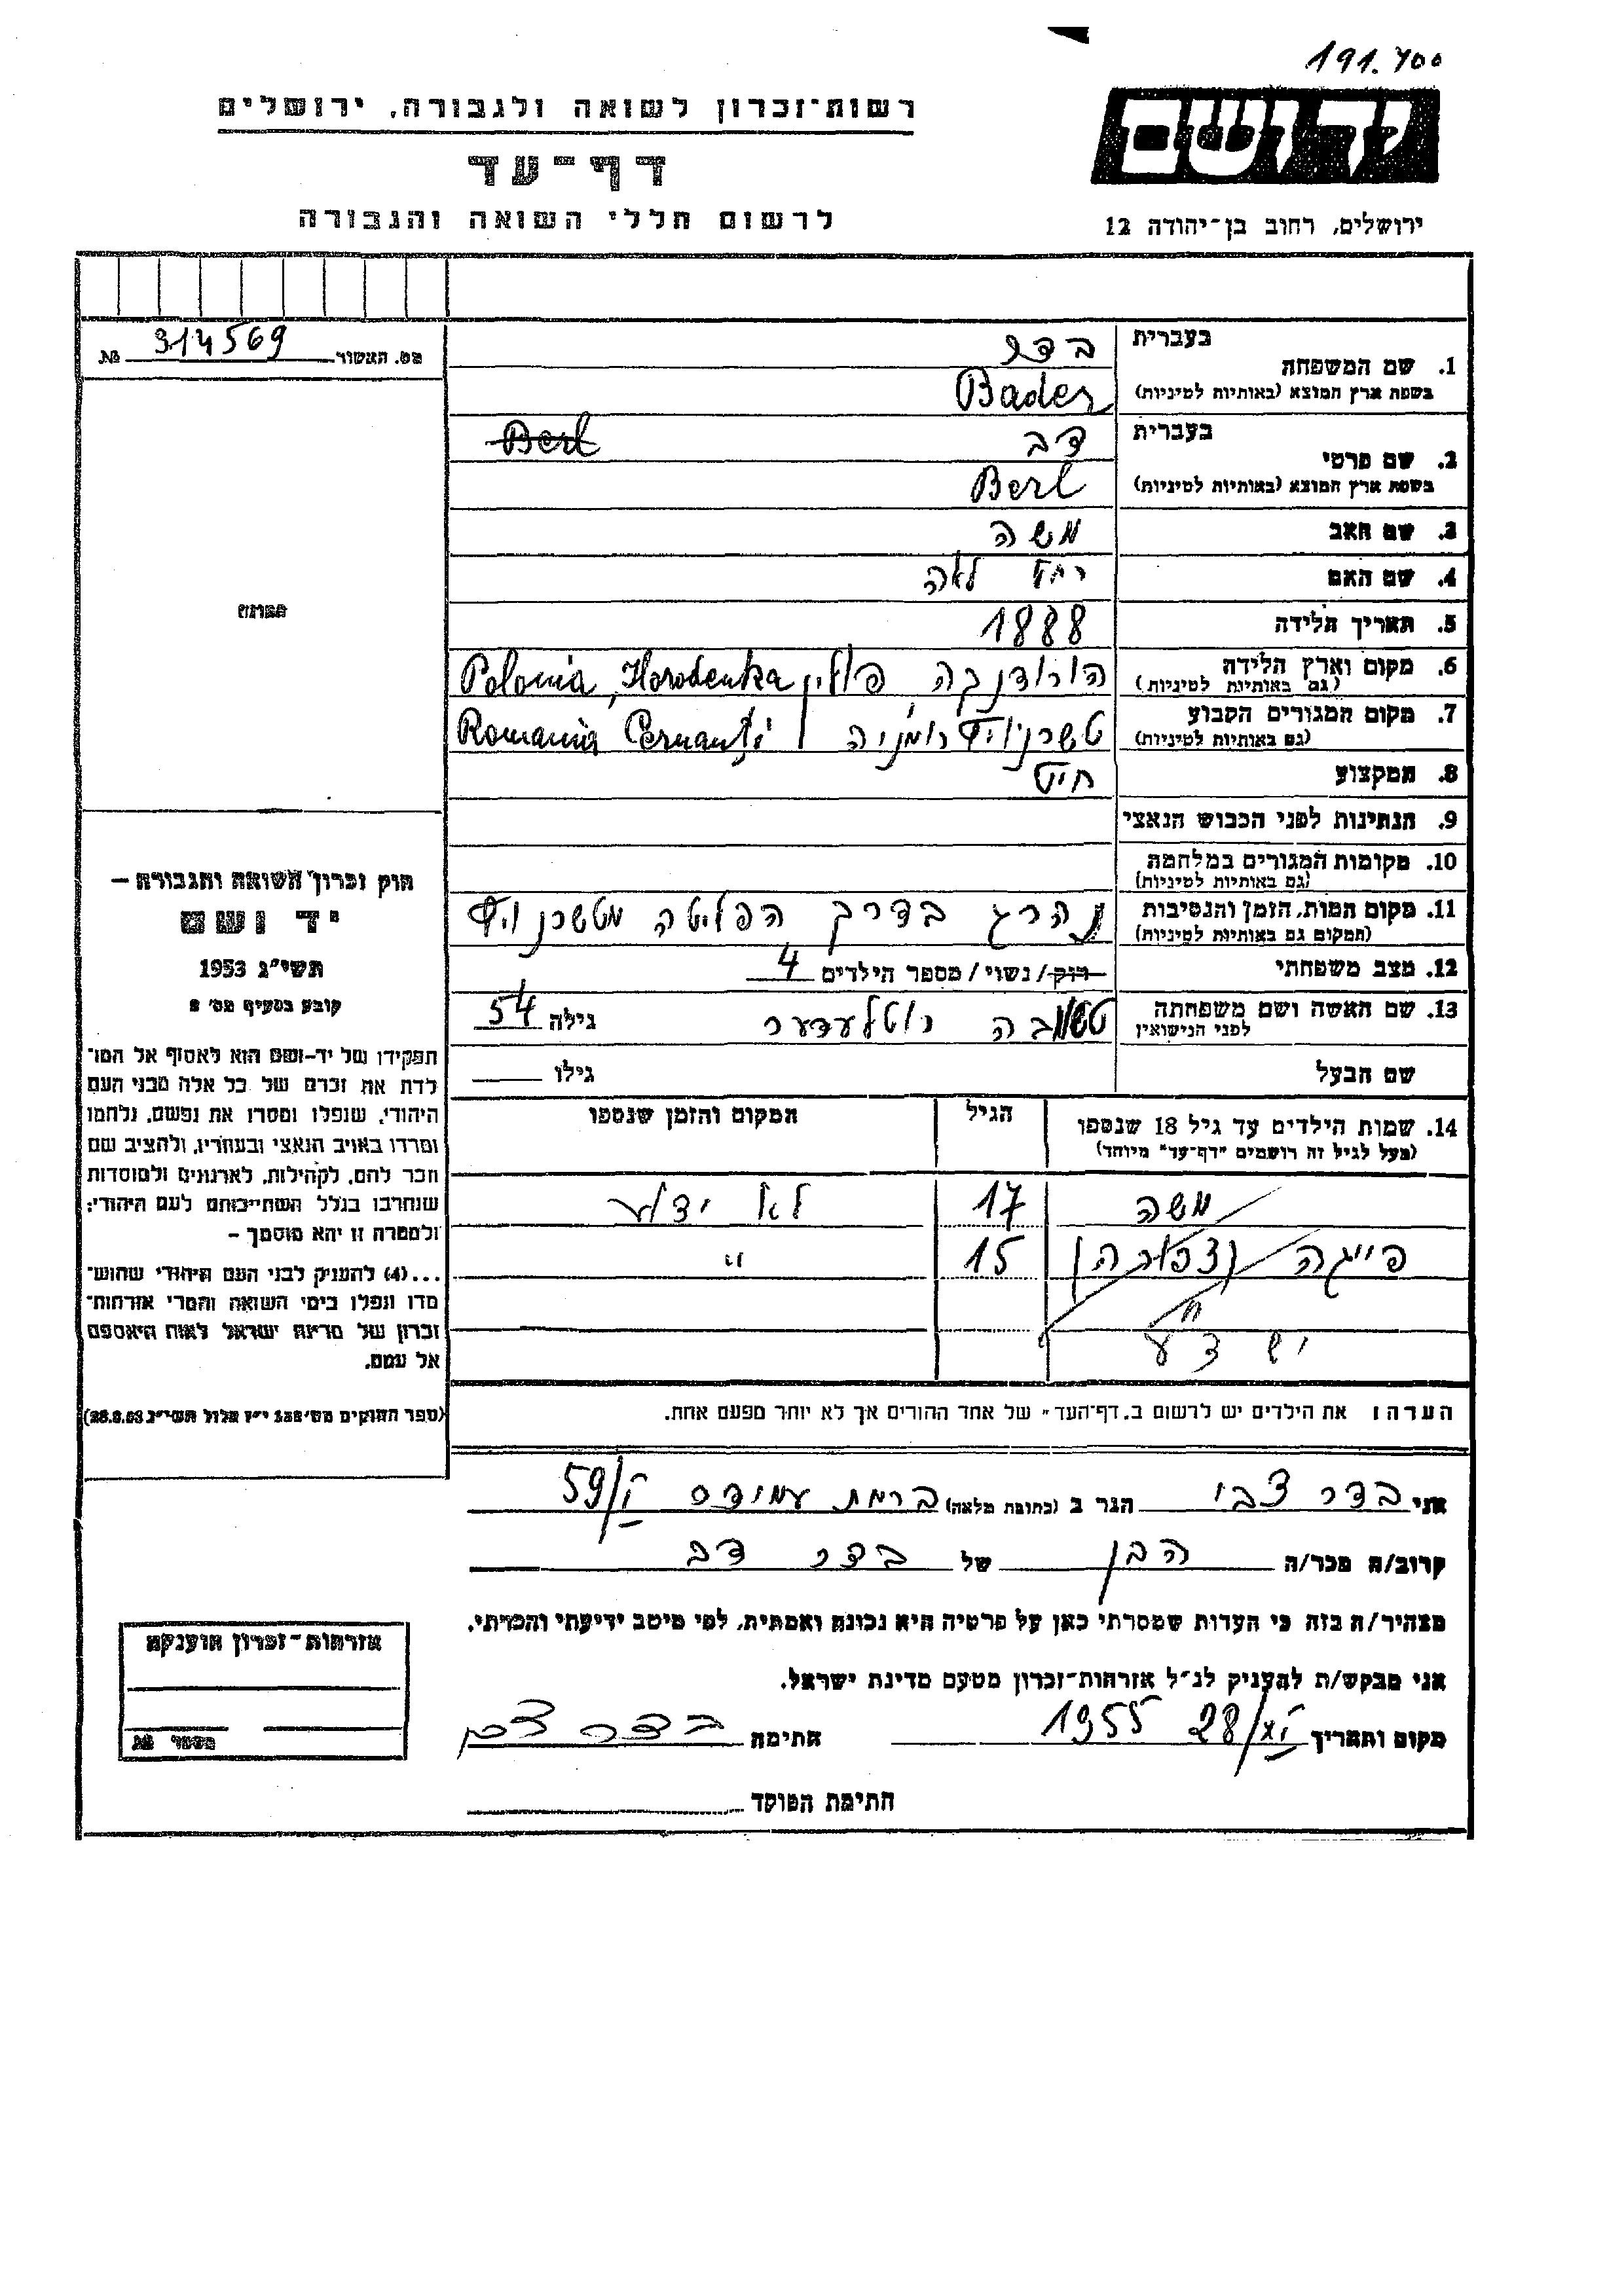 191.700
רשות-זכרון לשואה ולגבורה, ירושלים
יד ושם
דף-עד
לרשום חללי השואה והגבורה
ירושלים, רחוב בן-יהודה 12
מס. האשור № 314569
בעברית
1. שם המשפחה בדר
בשפת ארץ המוצא (באותיות לטיניות) Bader
בעברית
2. שם פרטי דב Berl
בשפת ארץ המוצא (באותיות לטיניות) Berl
3. שם האב משה
4. שם האם לאה
5. תאריך הלידה 1888
6. מקום וארץ הלידה הורודנקה פולין Polonia, Horodenka
(גם באותיות לטיניות)
7. מקום המגורים הקבוע טשרנוויץ רומניה Romania Cernauți
(גם באותיות לטיניות)
8. המקצוע חייט
9. הנתינות לפני הכבוש הנאצי
10. מקומות המגורים במלחמה
(גם באותיות לטיניות)
11. מקום המות, הזמן והנסיבות נהרג בדרך הפליטה מטשרנוויץ
(המקום גם באותיות לטיניות)
12. מצב משפחתי רוק/נשוי/מספר הילדים 4
13. שם האשה ושם משפחתה גילה 54
לפני הנישואין
שם הבעל גילו
14. שמות הילדים עד גיל 18 שנספו הגיל המקום והזמן שנספו
(מעל לגיל זה רושמים "דף-עד" מיוחד)
משה 17 לא ידוע
פייגה (צפורה) 15 "
יש ד"ע
הערה: את הילדים יש לרשום ב"דף-העד" של אחד ההורים אך לא יותר מפעם אחת.
תמונה
חוק זכרון השואה והגבורה –
יד ושם
תשי"ג 1953
קובע בסעיף מס'
תפקידו של יד-ושם הוא לאסוף אל המו־
לדת את זכרם של כל אלה מבני העם
היהודי, שנפלו ומסרו את נפשם, נלחמו
ומרדו באויב הנאצי ובעוזריו, ולהציב שם
וזכר להם, לקהילות, לארגונים ולמוסדות
שנחרבו בגלל השתייכותם לעם היהודי;
ולמטרה זו יהא מוסמך –
...(4) להעניק לבני העם היהודי שהוש־
מדו ונפלו בימי השואה והמרי אזרחות־
זכרון של מדינת ישראל לאות היאספם
אל עמם.
(ספר החוקים מס' 132 י"ז אלול תשי"ג 28.8.53)
אני בדר צבי הגר ב (כתובת מלאה) ברמת עמידר 59/I
קרוב/ה מכר/ה הבן של בדר דב
מצהיר/ה בזה כי העדות שמסרתי כאן על פרטיה היא נכונה ואמתית, לפי מיטב ידיעתי והכרתי.
אני מבקש/ת להעניק לנ"ל אזרחות-זכרון מטעם מדינת ישראל.
מקום ותאריך 28/XI 1955 חתימה בדר צבי
חתימת הפוקד
אזרחות-זכרון הוענקה
מספר №